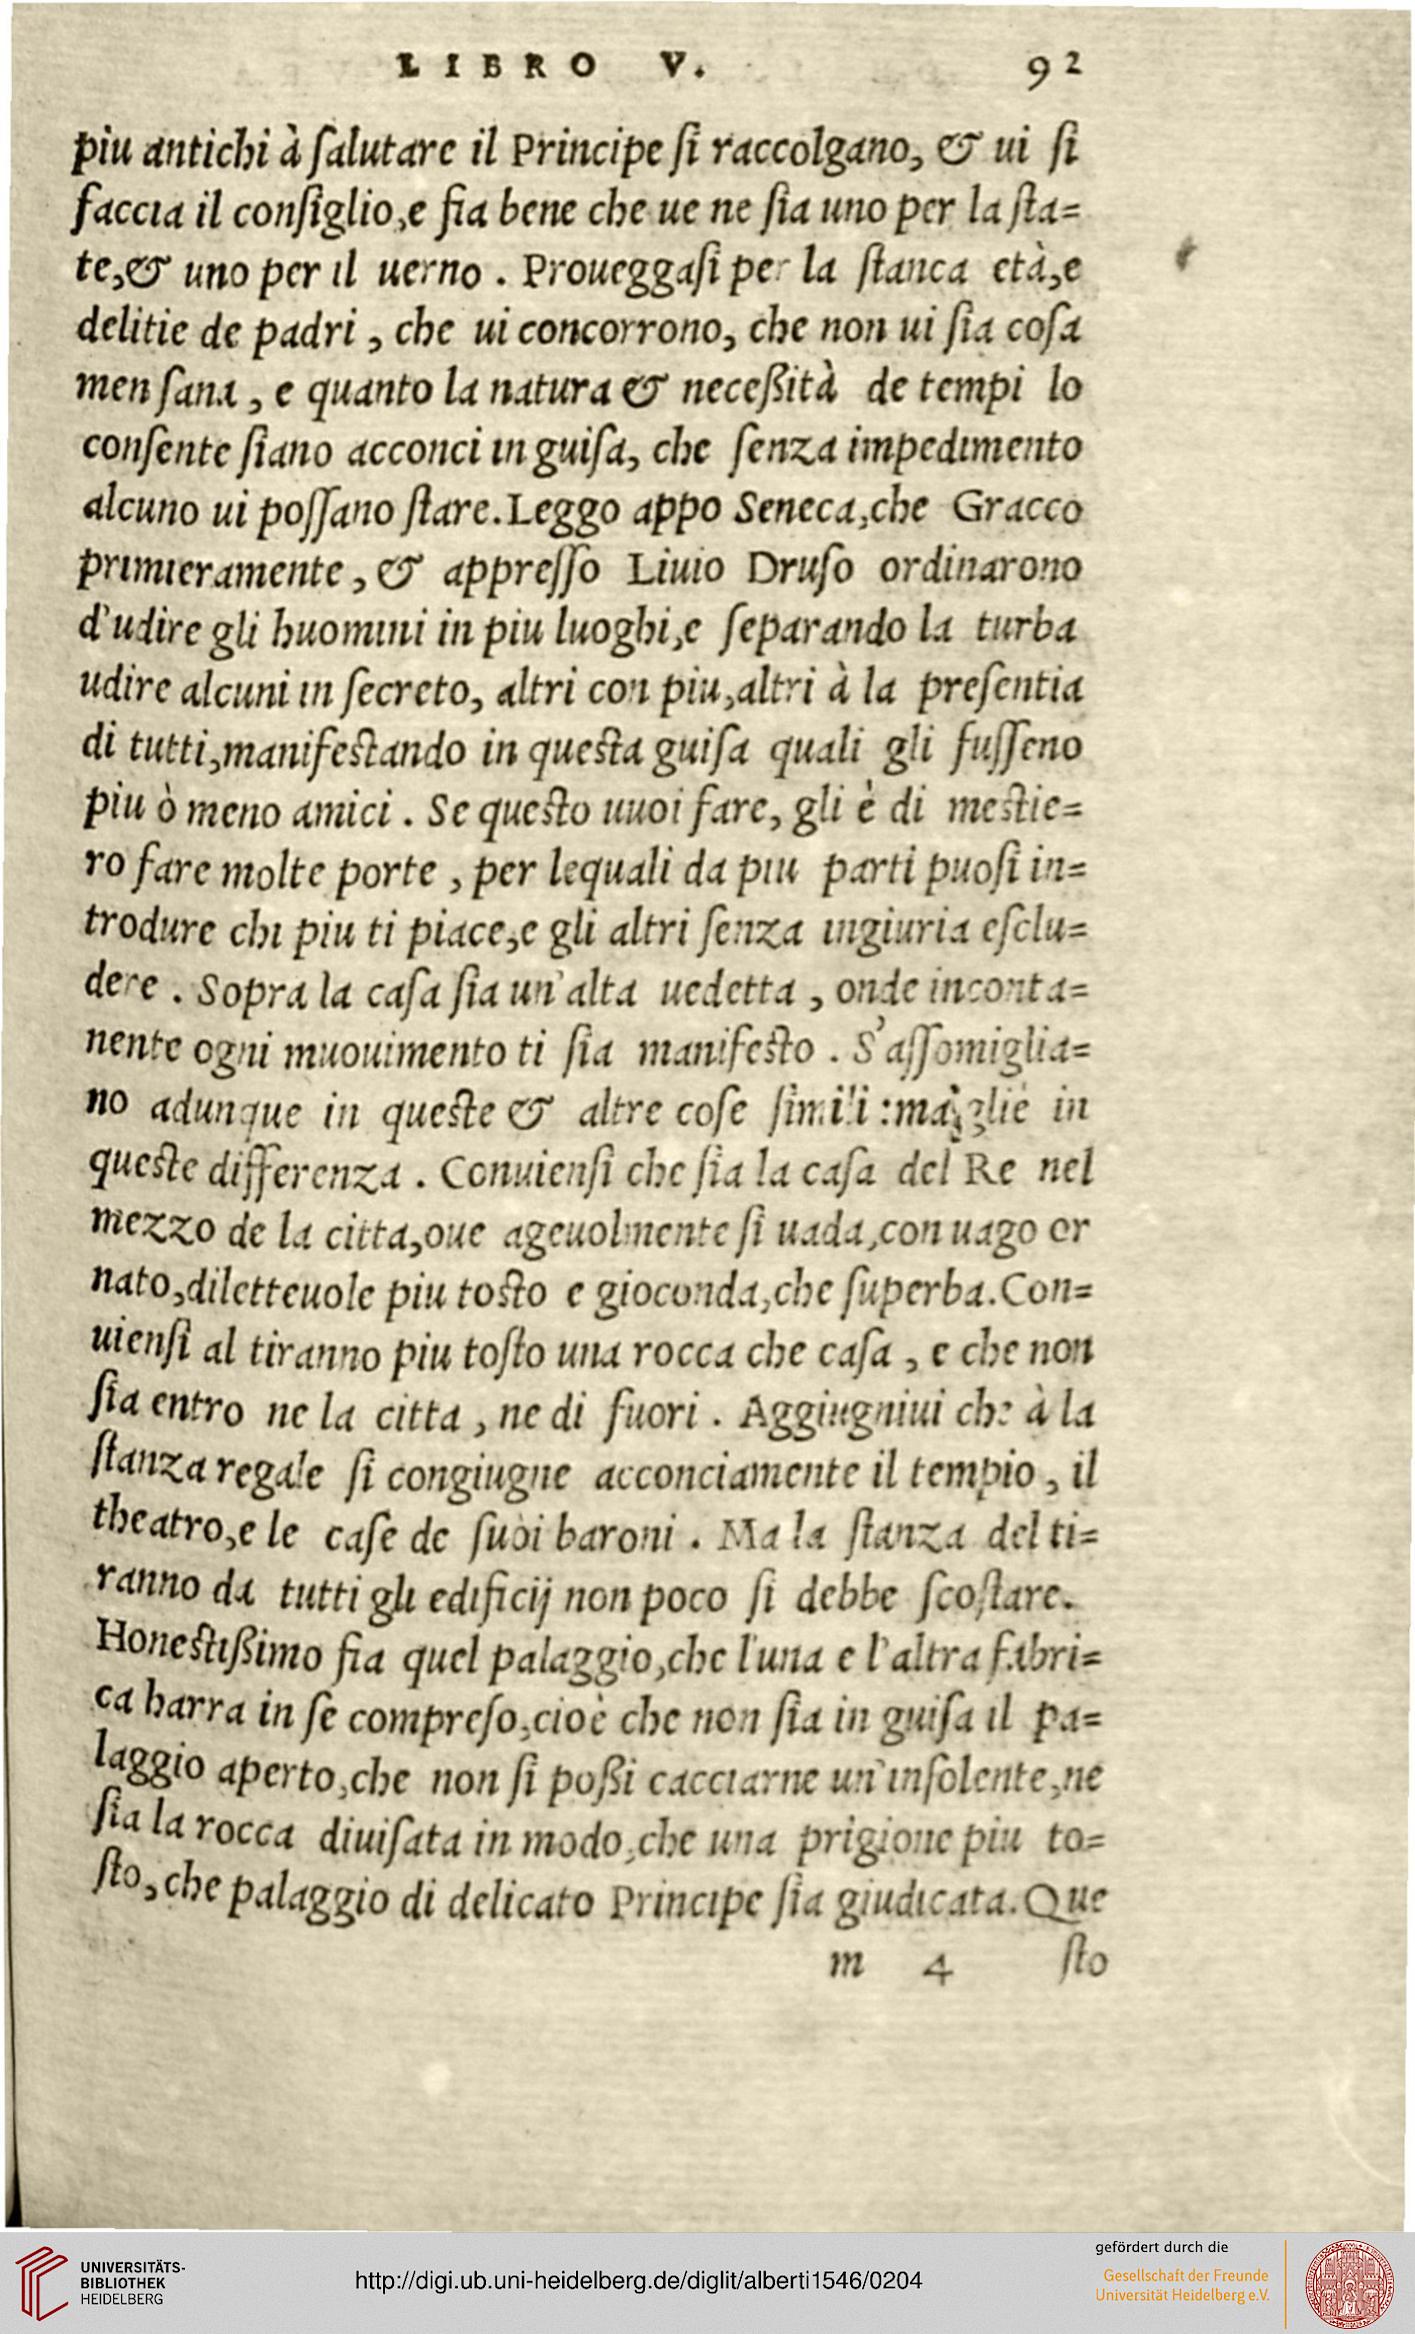 LIBRO V. 92
piu antichi à ſalutare il Principe ſi raccolgano, & ui ſi
faccia il conſiglio, e fia bene che ue ne ſia uno per la ſta=
te, & uno per il uerno. Proueggaſi per la ſtanca età, e
delitie de padri, che ui concorrono, che non ui ſia coſa
men ſana, e quanto la natura & neceßità de tempi lo
conſente ſiano acconci in guiſa, che ſenza impedimento
alcuno ui poſſano ſtare. Leggo appo Seneca, che Gracco
primieramente, & appreſſo Liuio Druſo ordinarono
d'udire gli huomini in piu luoghi, e ſeparando la turba
udire alcuni in ſecreto, altri con piu, altri à la preſentia
di tutti, manifeſtando in queſta guiſa quali gli fuſſeno
piu ò meno amici. Se queſto uuoi fare, gli è di meſtie=
ro fare molte porte, per lequali da piu parti puoſi in=
trodure chi piu ti piace, e gli altri ſenza ingiuria eſclu=
dere. Sopra la caſa ſia un'alta uedetta, onde inconta=
nente ogni muouimento ti ſia manifeſto. S'aſſomiglia=
no adunque in queſte & altre coſe ſimili: in
queſte differenza. Conuienſi che ſia la caſa del Re nel
mezzo de la citta, oue ageuolmente ſi uada, con uago or
nato, diletteuole piu toſto e gioconda, che ſuperba. Con=
uienſi al tiranno piu toſto una rocca che caſa, e che non
ſia entro ne la citta, ne di fuori. Aggiugniui che à la
ſtanza regale ſi congiugne acconciamente il tempio, il
theatro, e le caſe de ſuoi baroni. Ma la ſtanza del ti=
ranno da tutti gli edificij non poco ſi debbe ſcoſtare.
Honeſtißimo fia quel palaggio, che l'una e l'altra fabri=
ca harra in ſe compreſo, cioè che non ſia in guiſa il pa=
laggio aperto, che non ſi poßi cacciarne un'inſolente, ne
ſia la rocca diuiſata in modo, che una prigione piu to=
ſto, che palaggio di delicato Principe ſia giudicata. Que
m 4 ſto
UNIVERSITÄTS-
BIBLIOTHEK
HEIDELBERG
http://digi.ub.uni-heidelberg.de/diglit/alberti1546/0204
gefördert durch die
Gesellschaft der Freunde
Universität Heidelberg e.V.